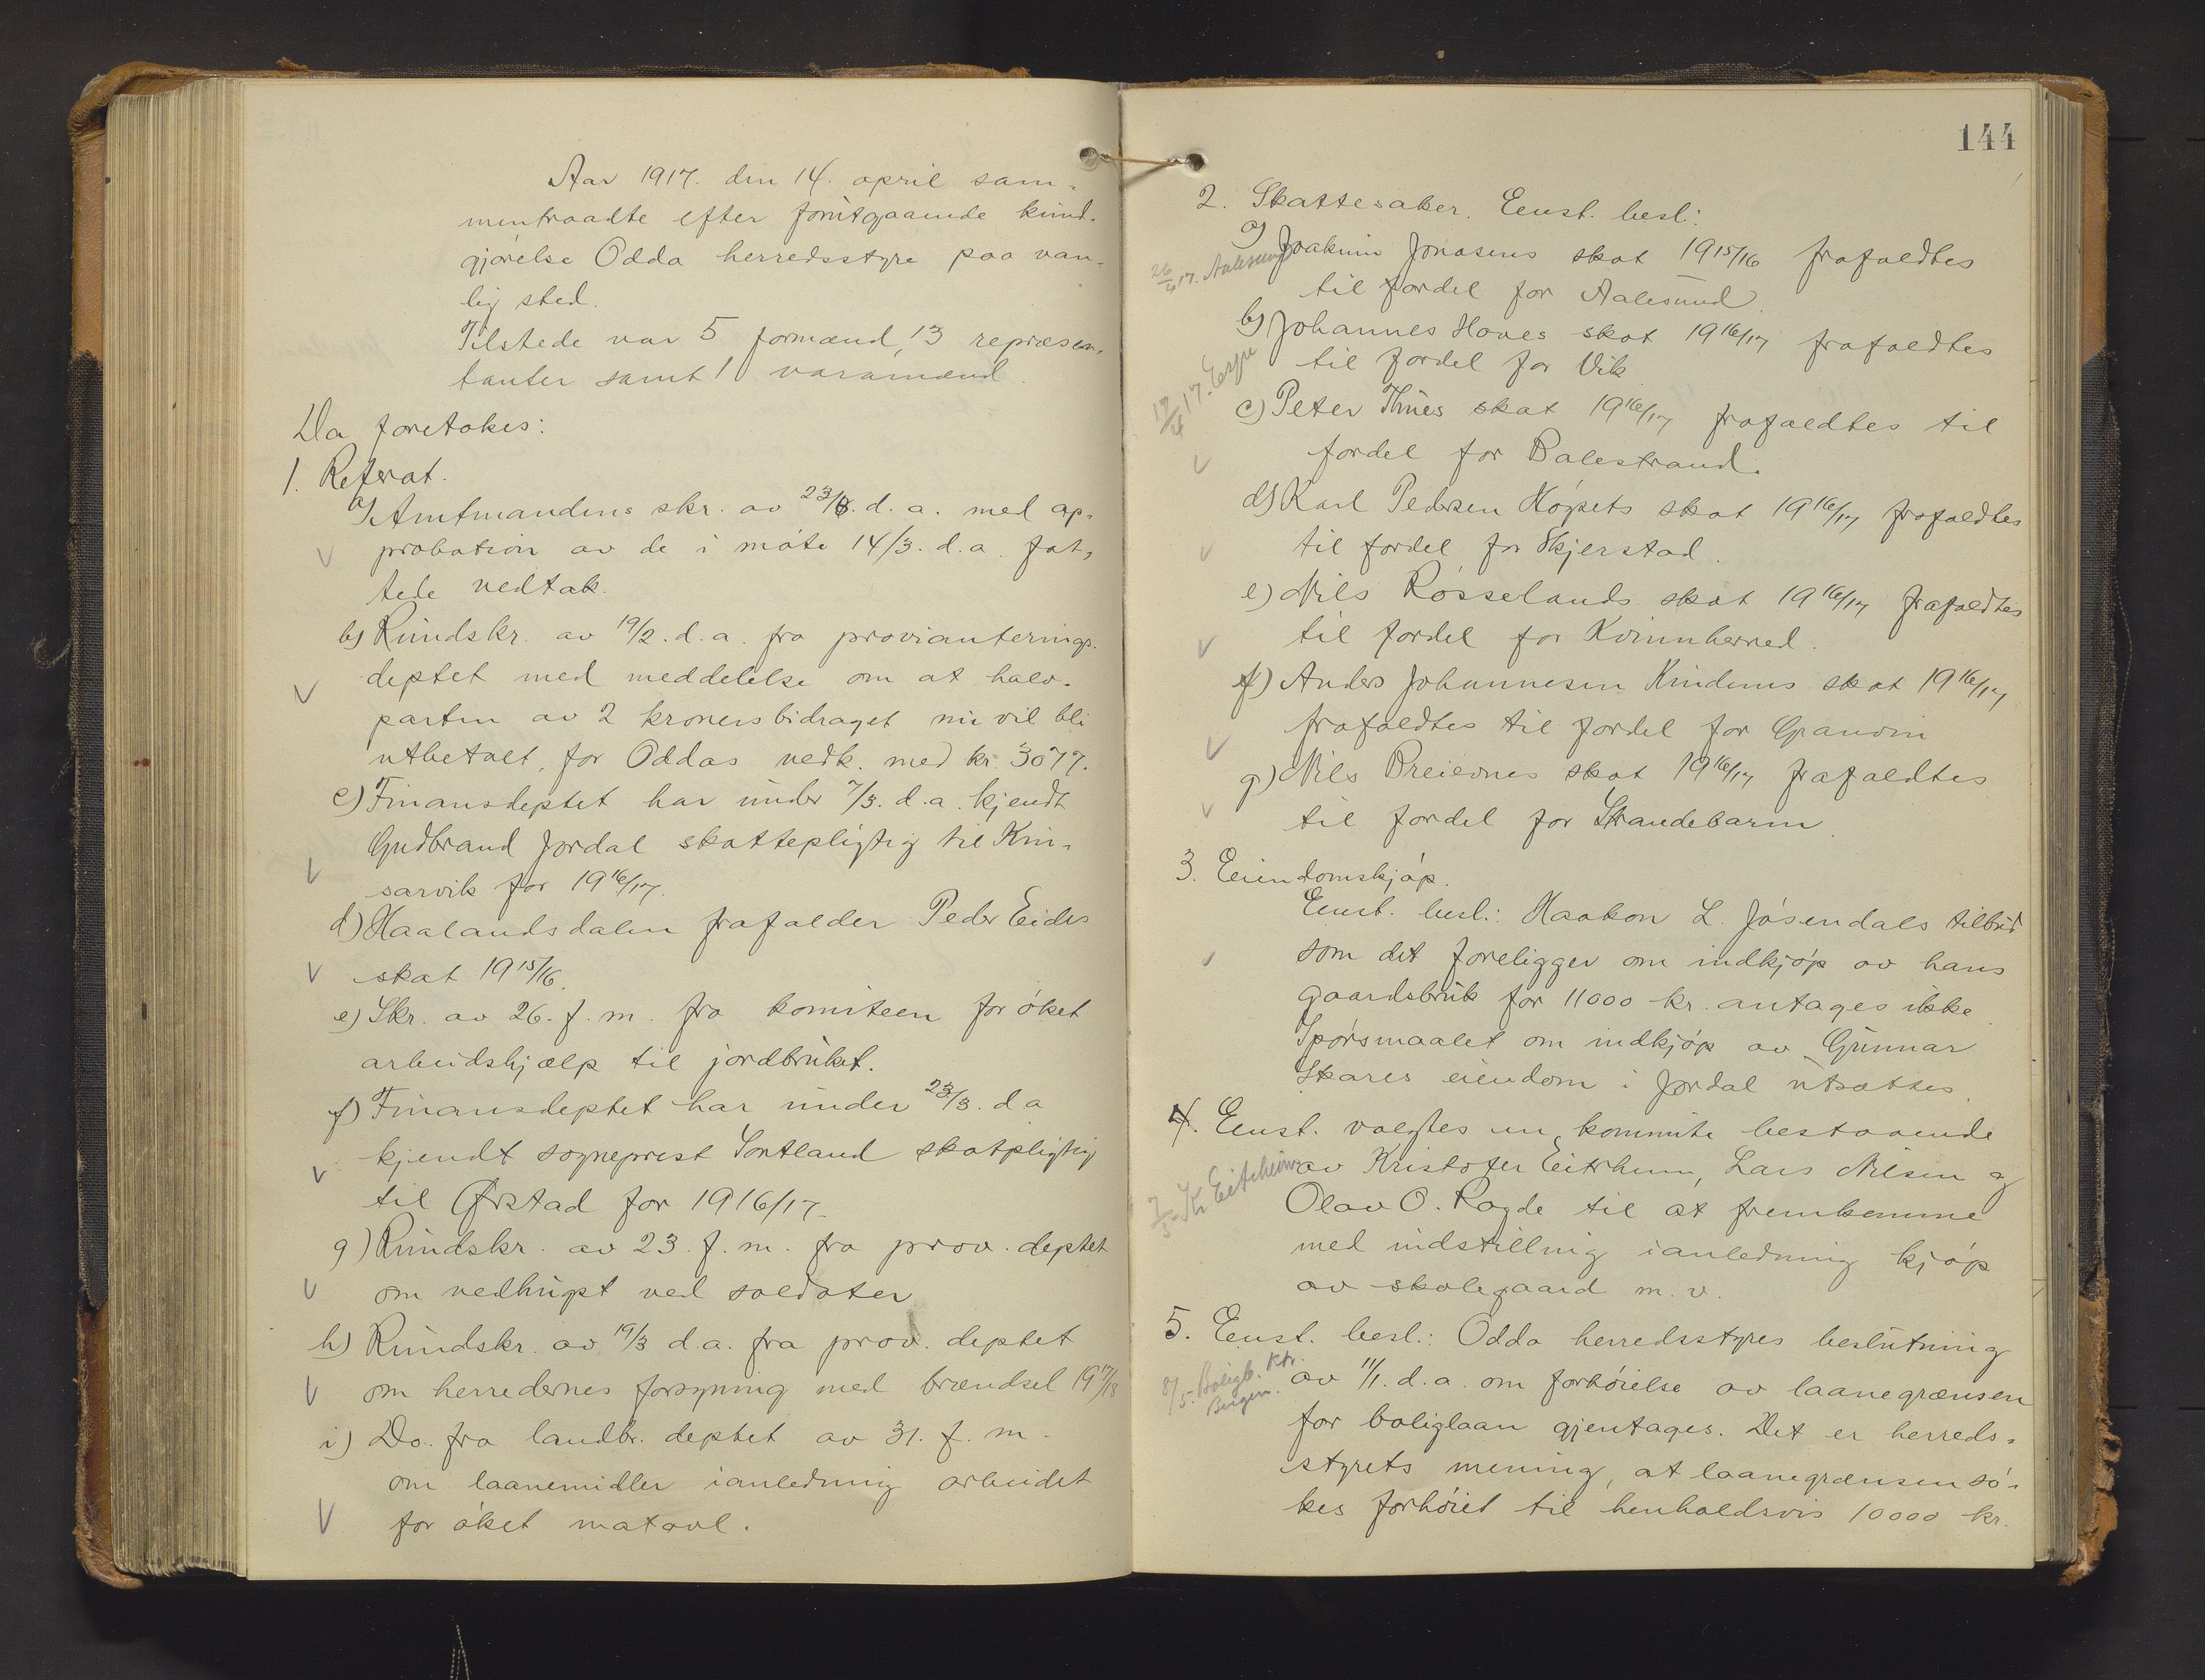 Aar 1917. den 14. april sam-
mentraadte efter forutgaaende kund-
gjørelse Odda herredsstyre paa van-
lig sted.
Tilstede var 5 formænd, 13 repræsen-
tanter samt 1 varamænd.
Da foretokes:
1. Referat.
a) Amtmandens skr. av 23/3. d. a. med ap-
probation av de i møte 14/3. d. a. fat-
tede vedtak.
b) Rundskr. av 19/2. d. a. fra provianterings-
deptet med meddelelse om at halv-
parten av 2 kroners bidraget nu vil bli
utbetalt, for Oddas vedk. med kr. 3077.
c) Finansdeptet har under 7/3. d. a. kjendt
Gudbrand Jordal skattepligtig til Kin-
sarvik for 1916/17.
d) Haalandsdalen frafalder Peder Eides
skat 1915/16.
e) Skr. av 26. f. m. fra komiteen for øket
arbeidshjælp til jordbruket.
f) Finansdeptet har under 23/3. d. a
kjendt sogneprest Sortland skatpligtig
til Ørstad for 1916/17.
g) Rundskr. av 23. f. m. fra prov. deptet
om vedhugst ved soldater
h) Rundskr. av 19/3 d. a. fra prov. deptet
om herredernes forsyning med brændsel 1917/18
i) Do. fra landbr. deptet av 31. f. m.
om laanemidler ianledning arbeidet
for øket matavl.
144
2. Skattesaker. Eenst. besl:
a) Joakim Jonasens skat 1915/16 frafaldtes
26/4 17. Aalesund
til fordel for Aalesund
b) Johannes Hoves skat 1916/17 frafaldtes
til fordel for Vik
19/4 17.
c) Peter Thues skat 1916/17 frafaldtes til
fordel for Balestrand.
d) Karl Pedersen Høgsets skat 1916/17 frafaldtes
til fordel for Skjerstad.
e) Nils Røsselands skat 1916/17 frafaldtes
til fordel for Kvinnherred.
f) Anders Johannesen Kindems skat 1916/17
frafaldtes til fordel for Granvin
g) Nils Breievnes skat 1916/17 frafaldtes
til fordel for Strandebarm.
3. Eiendomskjøp.
Eenst. besl.: Haakon L. Jøsendals tilbud
som det foreligger om indkjøp av hans
gaardsbruk for 11000 kr. antages ikke.
Spørsmaalet om indkjøp av Gunnar
Skares eiendom i Jordal utsættes.
4. Eenst. valgtes en kommite bestaaende
av Kristofer Eitrheim, Lars Nilsen og
7/5. Kr Eitrheim
Olav O. Ragde til at fremkomme
med indstilling ianledning kjøp
av skolegaard m. v.
5. Eenst. besl.: Odda herredsstyres beslutning
8/5. Boligb. Ktr. Bergen.
av 11/1. d. a. om forhøielse av laanegrænsen
for boliglaan gjentages. Det er herreds-
styrets mening, at laanegrænsen sø-
kes forhøiet til henholdsvis 10000 kr.